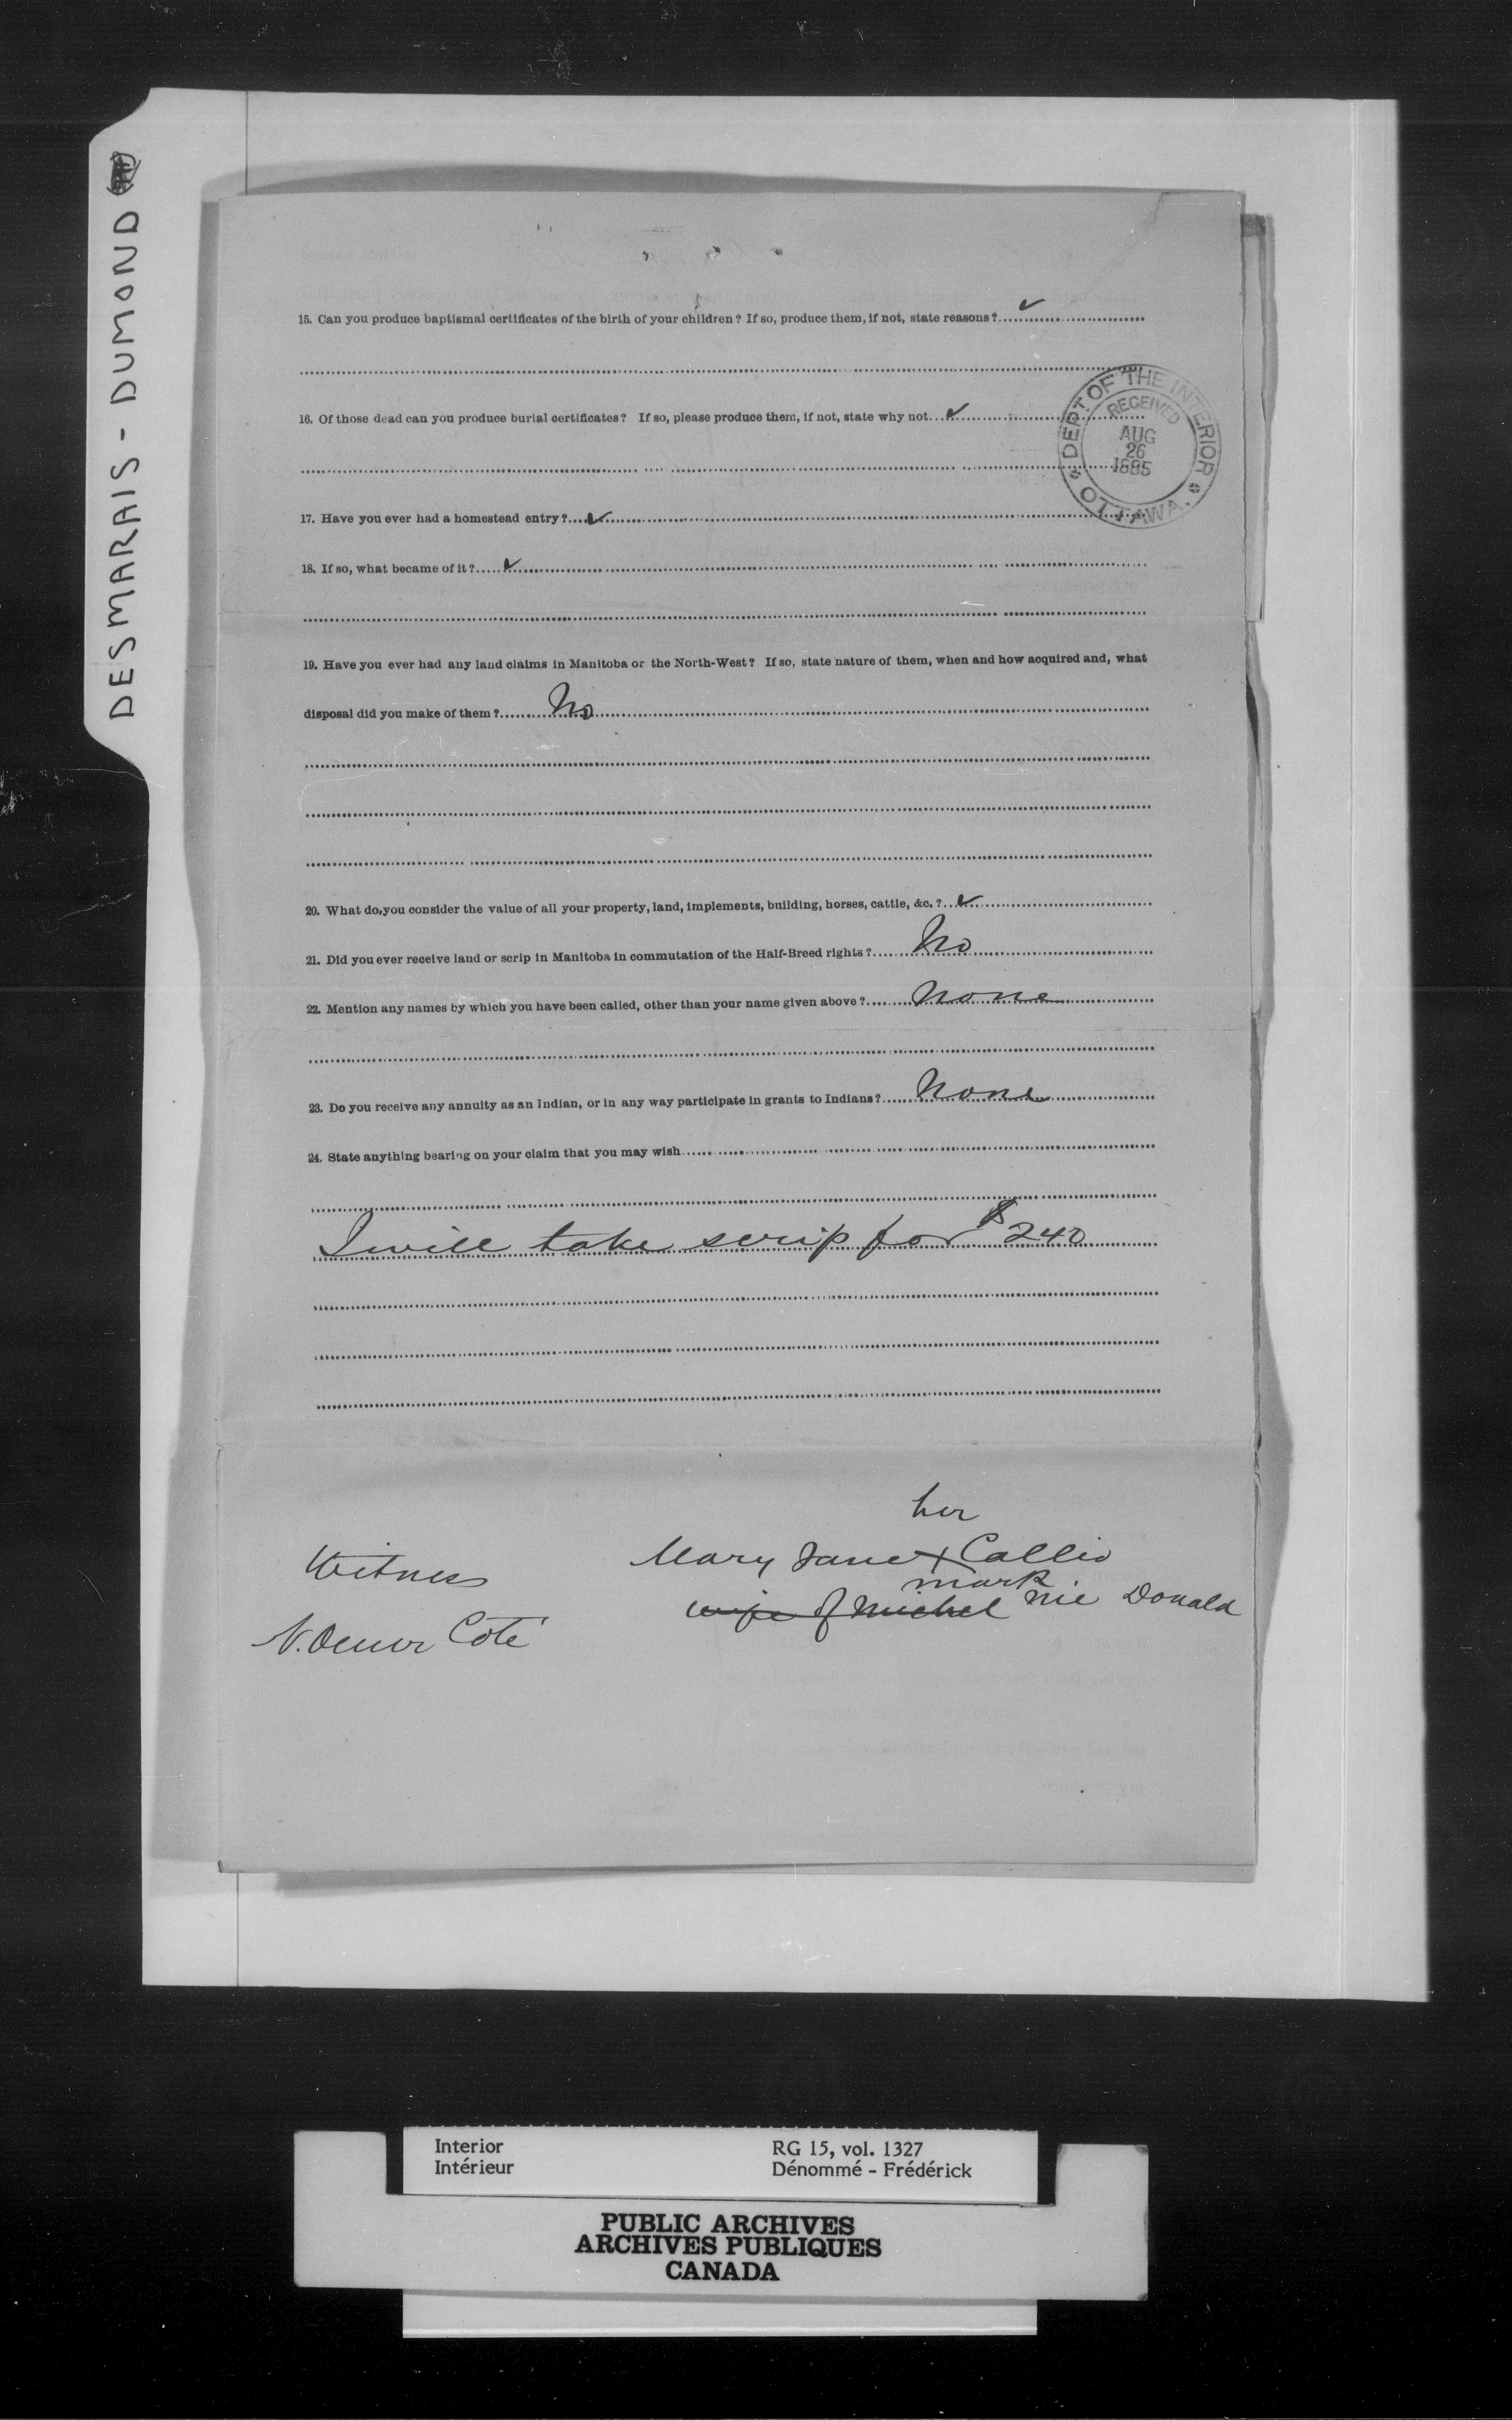 DESMARAIS - DUMOND
15. Can you produce baptismal certificates of the birth of your children? If so, produce them, if not, state reasons? ✓
16. Of those dead can you produce burial certificates? If so, please produce them, if not, state why not ✓
DEPT OF THE INTERIOR
RECEIVED
AUG
26
1885
OTTAWA.
17. Have you ever had a homestead entry? ✓
18. If so, what became of it? ✓
19. Have you ever had any land claims in Manitoba or the North-West? If so, state nature of them, when and how acquired and, what
disposal did you make of them? No
20. What do you consider the value of all your property, land, implements, building, horses, cattle, &c.? ✓
21. Did you ever receive land or scrip in Manitoba in commutation of the Half-Breed rights? No
22. Mention any names by which you have been called, other than your name given above? None
23. Do you receive any annuity as an Indian, or in any way participate in grants to Indians? None
24. State anything bearing on your claim that you may wish
I will take scrip for $240
her
Witness Mary Jane X Callio
mark
wife of Michel nie Donald
N. Omer Coté
Interior
Intérieur
RG 15, vol. 1327
Dénommé - Frédérick
PUBLIC ARCHIVES
ARCHIVES PUBLIQUES
CANADA